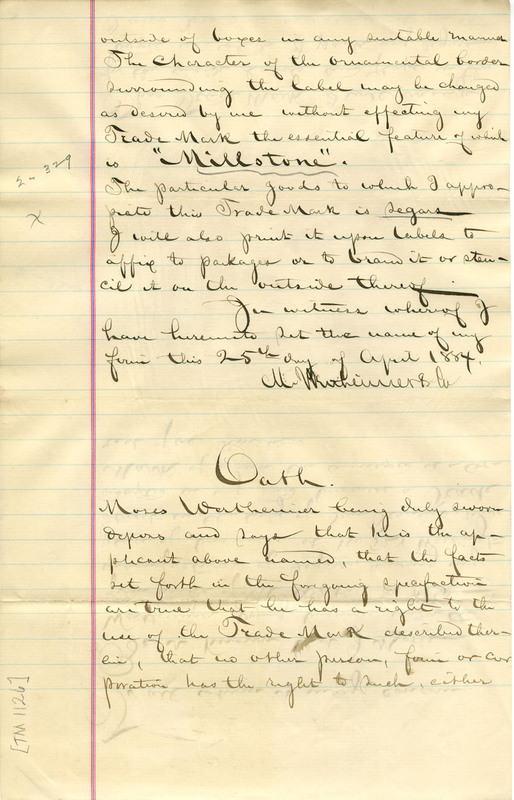 outside of boxes in any suitable manner
The Character of the ornamental border
surrounding the label may be changed
as desired by me without effecting my
Trade Mark the essential feature of which
is "Millstone".
2-329
The particular goods to which I appro-
X
piate this Trade Mark is segars
I will also print it upon labels to
affix to packages or to brand it or sten-
cil it on the outside thereof.
In witness whereof I
have hereunto set the name of my
firm this 25th day of April 1884.
M. Wertheimer & Co
Oath.
Moses Wertheimer being duly sworn
depons and says that he is the ap-
plicant above named, that the facts
set forth in the forgoing specifaction
are true that he has a right to the
use of the Trade Mark described ther-
ein, that no other person, firm or cor
poration has the right to such, either
[TM 1126]